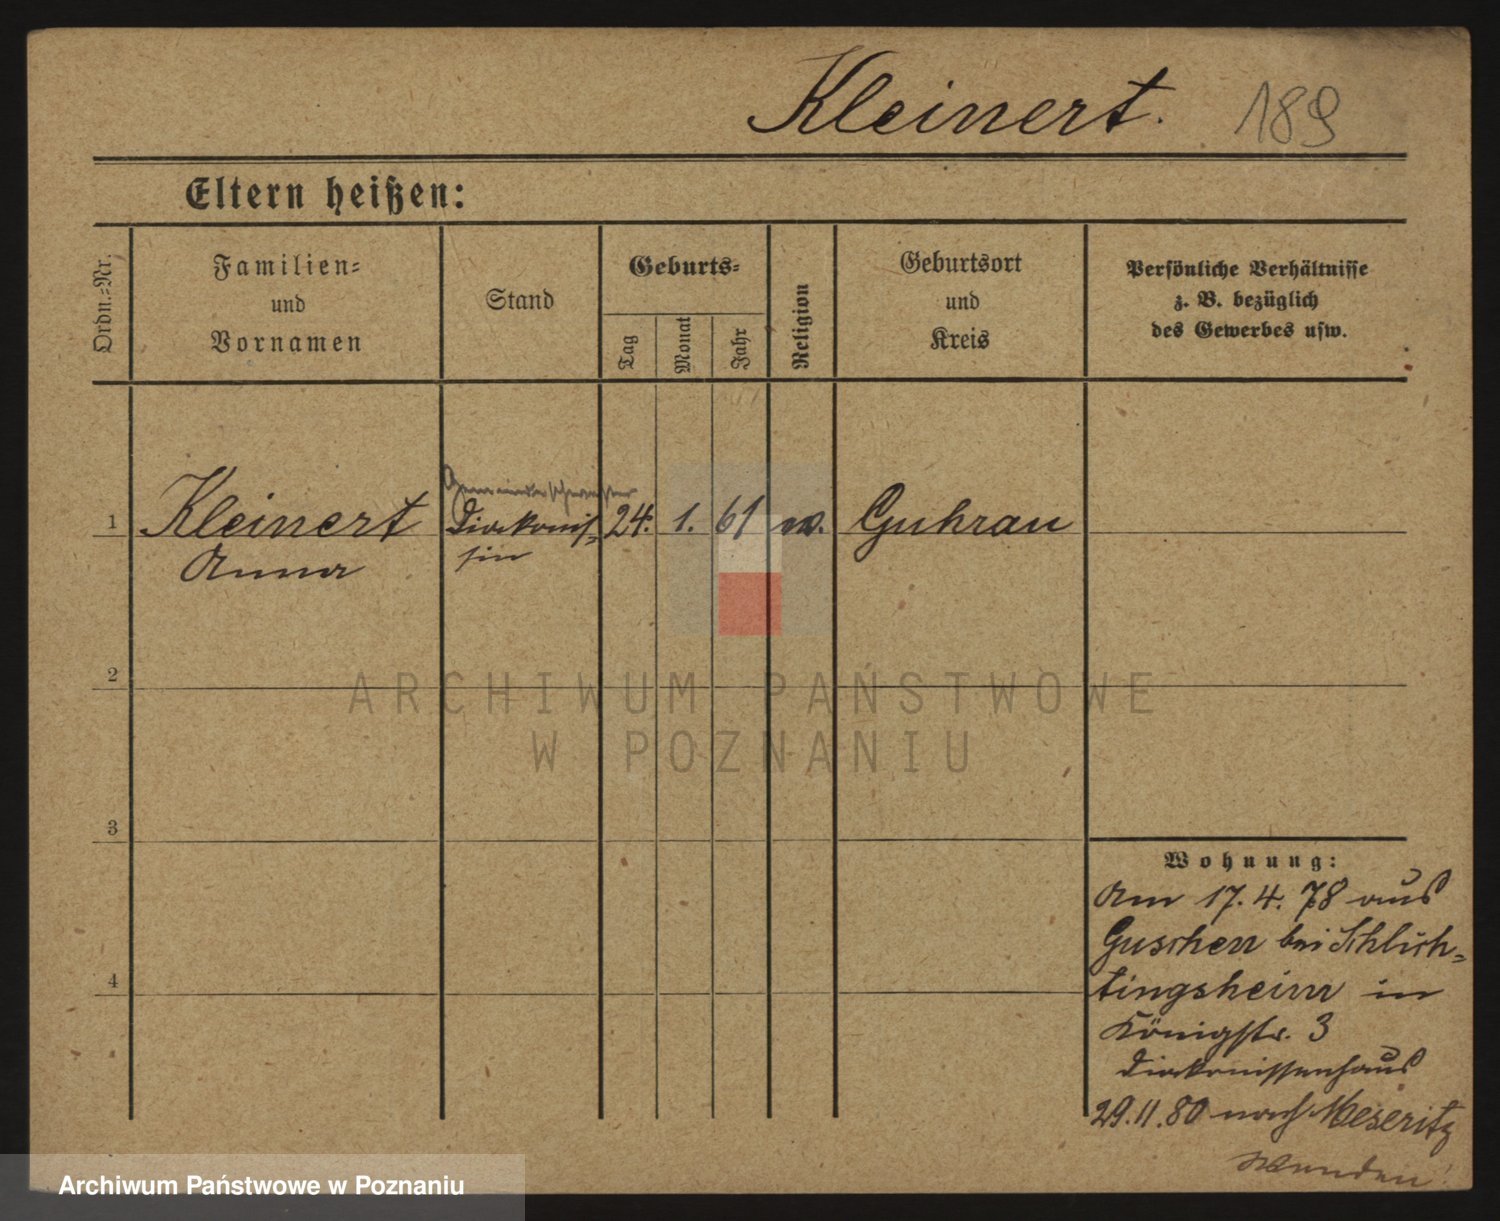 Kleinert. 189
Eltern heißen:
Ordn.-Nr.
Familien-
und
Vornamen
Stand
Geburts-
Tag
Monat
Jahr
Religion
Geburtsort
und
Kreis
Persönliche Verhältnisse
z. B. bezüglich
des Gewerbes usw.
Gemeindeschwester
1 Kleinert Diakonis- 24. 1. 61 Guhrau
Anna sin
2
ARCHIWUM PAŃSTWOWE
W POZNANIU
3
Wohnung:
Am 17. 4. 78 aus
Guschen bei Schlich-
tingsheim in
4
Königstr. 3
Diakonissenhaus
29.11.80 nach Meseritz
Wenden!
Archiwum Państwowe w Poznaniu